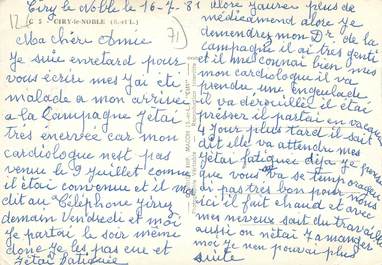 Ciry le Noble le 16-7-81
12 G 5 CIRY-le-NOBLE (S.-et-L.)
71
Ma chère Annie
Je suie enretard pour
vous écrire mes j'ai éti
malade a mon arriver
a la Campagne J'etai
tres énervée car mon
cardiologue nest pas
venue le 9 juillet comme
il étai convenue et il ma
dit au Céléphone j'irez
demain Vendredi et moi
Je partai le soir même
donc Je les pas eue et
J'étai fatiguée
alore J'aurez plus de
médicamend alore Je
demendrez mon Dr de la
campagne il ai tres genti
et il me connai bien mes
mon cardiologue il va
prendre une engeulade
il va derouillée il étai
presser il partai en vacance
4 Jour plus tard il sait
dit elle va attendre mes
J'étai fatiguée déja Je pense
que vous va se temps orageu
ai pas tres bon pour nous
ici il fait chaud et avec
mes neveux sont du travaille
aussi on n'étai 7 a manger
moi Je nen pouvai plus
suite